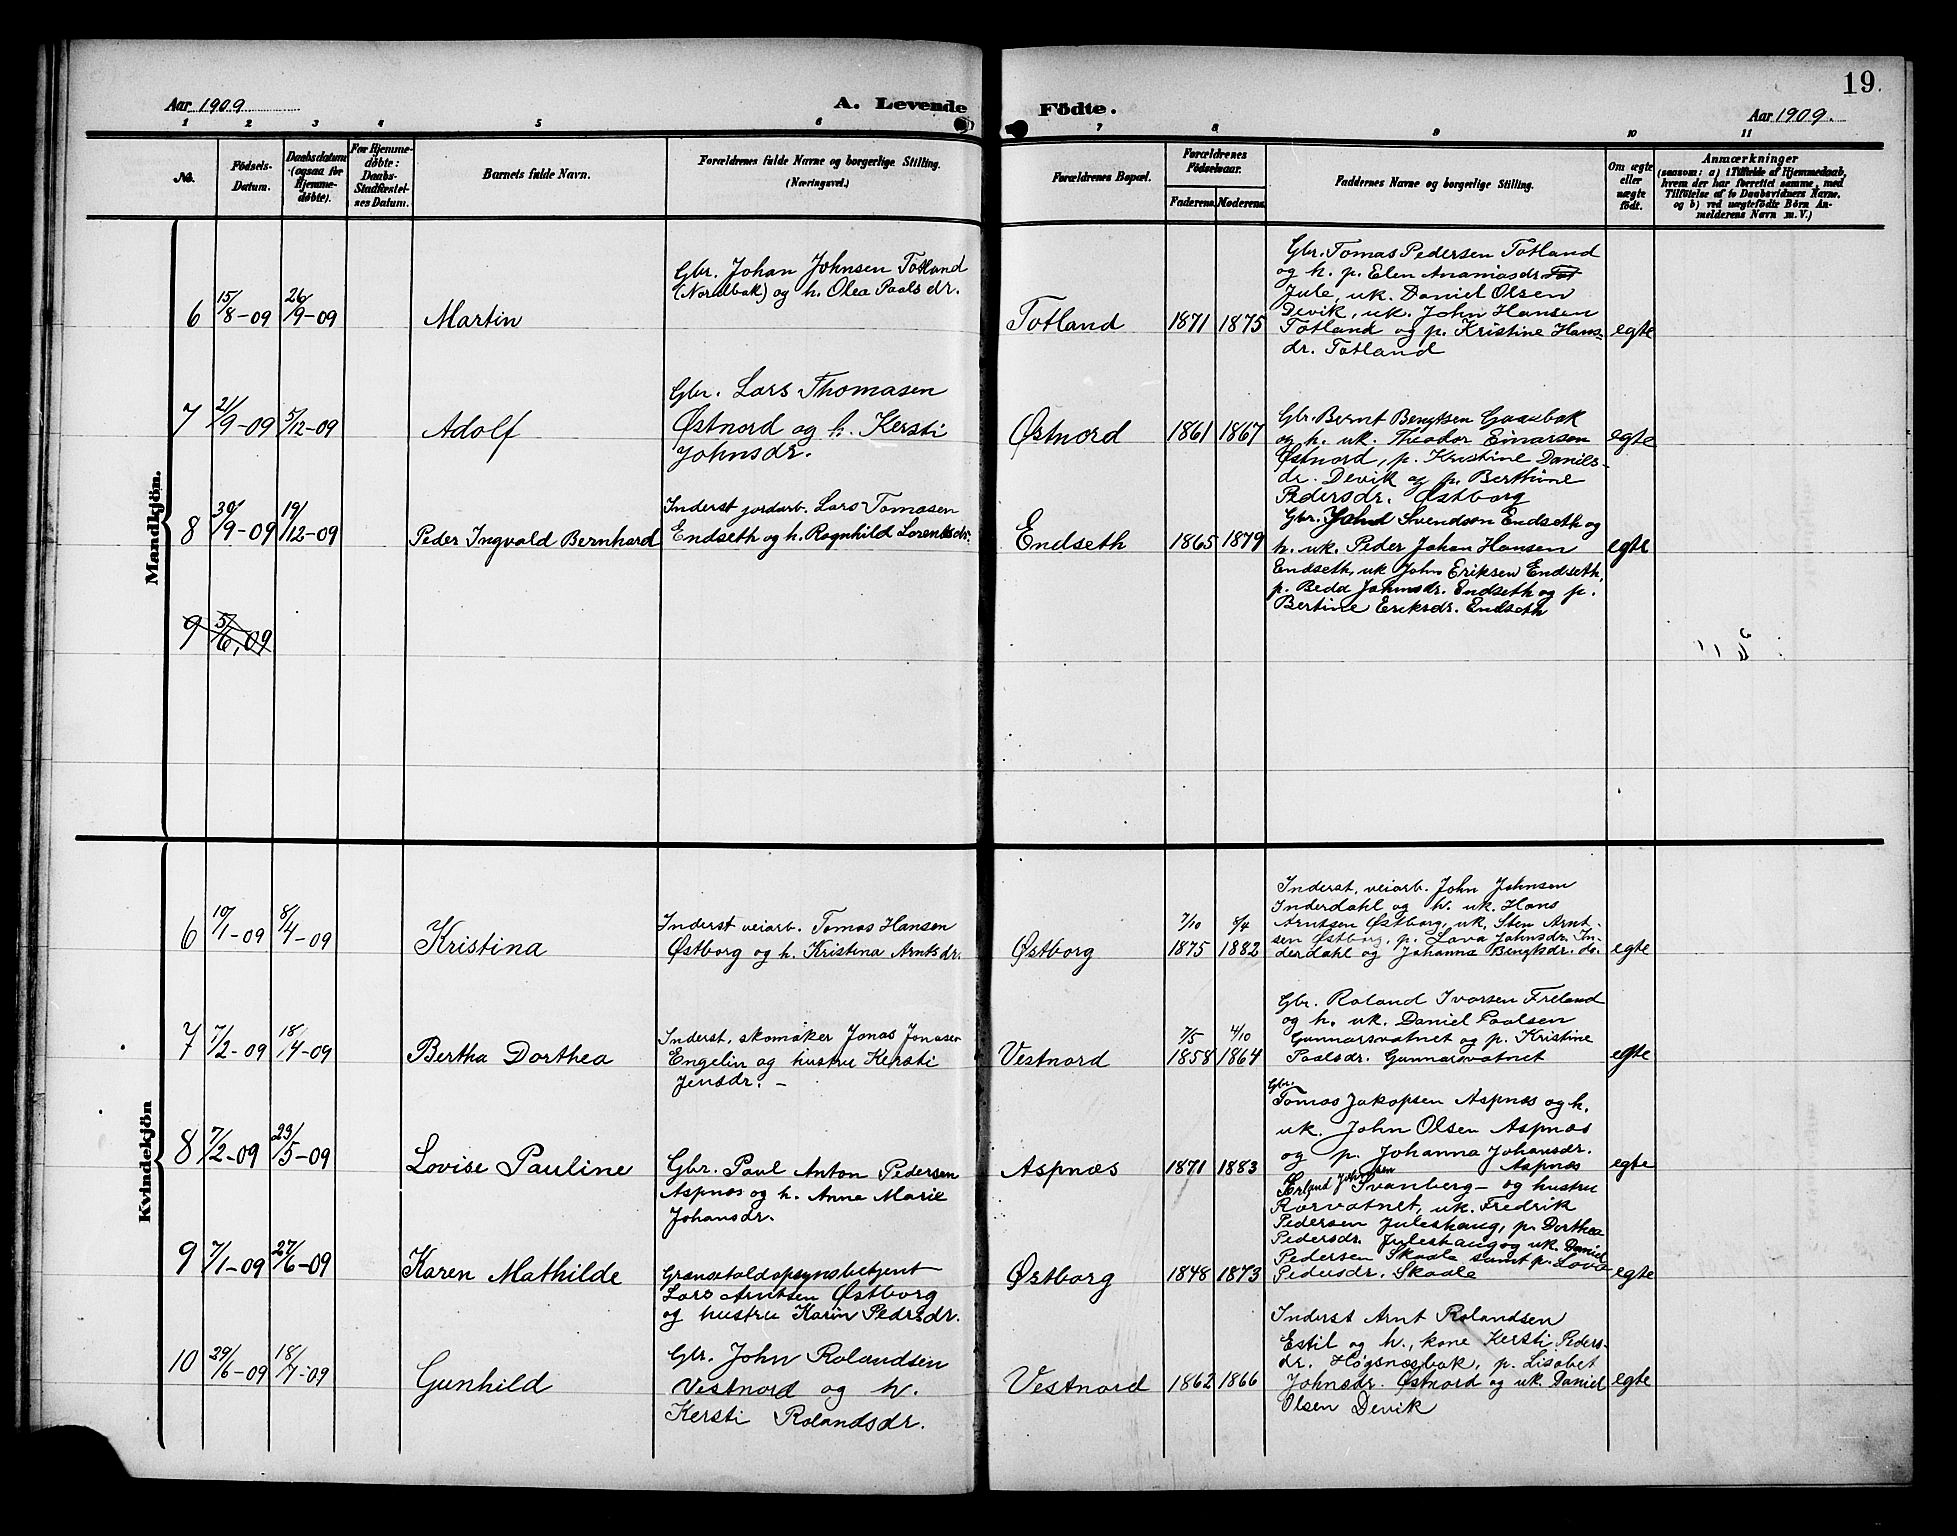 19.
Aar 1909 A. Levende Födte. Aar 1909.
1 2 3 4 5 6 7 8 9 10 11
No.
Födsels-
Datum.
Daabsdatum
(ogsaa for
Hjemme-
döbte).
For Hjemme-
döbte:
Daabs-
Stadfæstel-
ses Datum.
Barnets fulde Navn.
Forældrenes fulde Navne og borgerlige Stilling.
(Næringsvei.)
Forældrenes Bopæl.
Forældrenes
Födselsaar.
Faderens. Moderens.
Faddernes Navne og borgerlige Stilling.
Om ægte
eller
uægte
födt.
Anmærkninger
(saasom: a) i Tilfælde af Hjemmedaab,
hvem der har forrettet samme, med
Tilföielse af to Daabsvidners Navne,
og b) ved uægtefödte Börn An-
melderens Navn m. V.)
Mandkjön.
6 15/8-09 26/9-09 Martin
Gbr. Johan Johnsen Totland
(Nordbak) og h. Olea Paalsdr.
Totland 1871 1875
Gbr. Tomas Pedersen Totland
og h. p. Elen Ananiasdr. Tot
Jule, uk. Daniel Olsen
Devik, uk. John Hansen
Totland og p. Kristine Hans-
dr. Totland
egte
7 21/9-09 5/12-09 Adolf
Gbr. Lars Thomasen
Østnord og h. Kersti
Johnsdr.
Østnord 1861 1867
Gbr. Bernt Bengtsen Gaasbak
og h. uk. Theodor Einarsen
Østnord, p. Kristine Daniels-
dr. Devik og p. Berthine
Pedersdr. Østborg
egte
8 30/9-09 19/12-09 Peder Ingvald Bernhard
Inderst jordarb. Lars Tomasen
Endseth og h. Ragnhild Lorentsdr.
Endseth 1865 1879
Gbr. John Svendsen Endseth og
h. uk. Peder Johan Hansen
Endseth, uk John Eriksen Endseth,
p. Beda Johnsdr. Endseth og p.
Bertine Eriksdr. Endseth
egte
9 5/6, 09
Kvindekjön
6 10/1-09 8/4-09 Kristina
Inderst veiarb. Tomas Hansen
Østborg og h. Kristina Arntsdr.
Østborg 7/10 1875 8/4 1882
Inderst, veiarb. John Johnsen
Inderdahl og h. uk. Hans
Arntsen Østborg, uk. Sten Arnt-
sen Østborg, p. Lava Johnsdr. In-
derdahl og Johanna Bengtsdr. do.
egte
7 7/2-09 18/4-09 Bertha Dorthea
Inderst, skomaker Jonas Jonasen
Engelin og hustru Kersti
Jensdr. -
Vestnord 7/5 1858 4/10 1864
Gbr. Roland Ivarsen Freland
og h. uk. Daniel Paalsen
Gunnarsvatnet og p. Kristine
Paalsdr. Gunnarsvatnet
egte
8 7/2-09 23/5-09 Lovise Pauline
Gbr. Paul Anton Pedersen
Aspnæs og h. Anna Marie
Johansdr.
Aspnæs 1871 1883
Gbr.
Tomas Jakopsen Aspnæs og h.
uk. John Olsen Aspnæs
og p. Johanna Johansdr.
Aspnæs
egte
9 7/1-09 27/6-09 Karen Mathilde
Grænsetoldopsynsbetjent
Lars Arntsen Østborg
og hustru Karin Pedersdr.
Østborg 1848 1873
Erland Johnsen Svanberg - og hustru
Rørvatnet, uk. Fredrik
Pedersen Juleshaug, p. Dorthea
Pedersdr. Juleshaug og uk. Daniel
Pedersen Skaale samt p. Lova
Pedersdr. Skaale
egte
10 29/6-09 18/7-09 Gunhild
Gbr. John Rolandsen
Vestnord og h.
Kersti Rolandsdr.
Vestnord 1862 1866
Inderst Arnt Rolandsen
Estil og h., kone Kersti Peders-
dr. Høgsnæsbak, p. Lisabet
Johnsdr. Østnord og uk. Daniel
Olsen Devik
egte